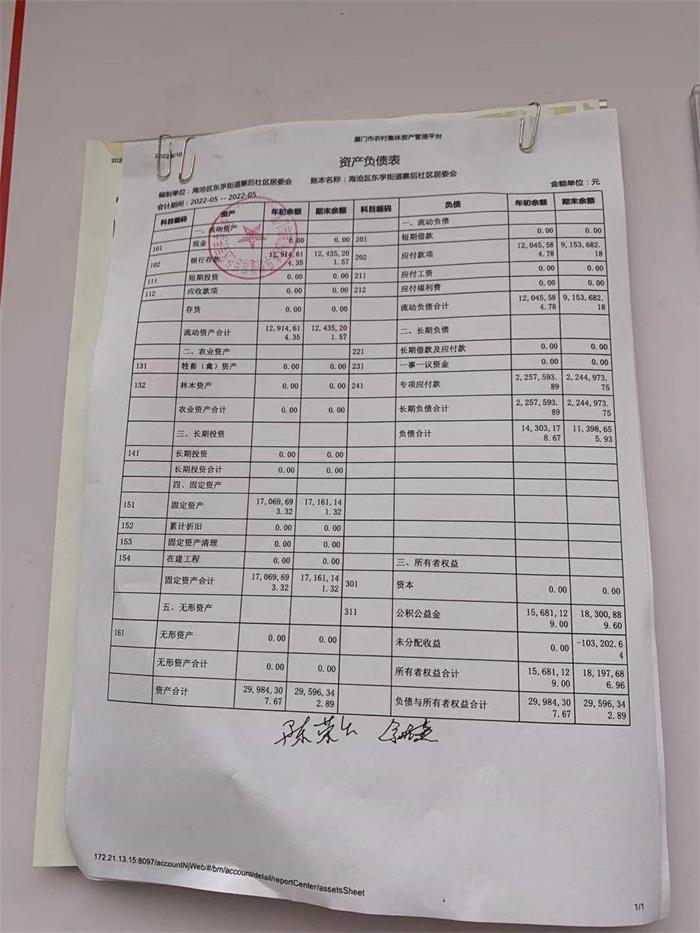 厦门市农村集体资产管理平台
资产负债表
编制单位：海沧区东孚街道寨后社区居委会 账本名称：海沧区东孚街道寨后社区居委会
会计期间：2022-05 -- 2022-05 金额单位：元
科目编码 资产 年初余额 期末余额 科目编码 负债 年初余额 期末余额
一、流动资产 一、流动负债
101 现金 0.00 0.00 201 短期借款 0.00 0.00
102 银行存款 12,914,614.35 12,435,201.57 202 应付款项 12,045,584.78 9,153,682.18
111 短期投资 0.00 0.00 211 应付工资 0.00 0.00
112 应收款项 0.00 0.00 212 应付福利费 0.00 0.00
存货 0.00 0.00 流动负债合计 12,045,584.78 9,153,682.18
流动资产合计 12,914,614.35 12,435,201.57 二、长期负债
二、农业资产 221 长期借款及应付款 0.00 0.00
131 牲畜（禽）资产 0.00 0.00 231 一事一议资金 0.00 0.00
132 林木资产 0.00 0.00 241 专项应付款 2,257,593.89 2,244,973.75
农业资产合计 0.00 0.00 长期负债合计 2,257,593.89 2,244,973.75
三、长期投资 负债合计 14,303,178.67 11,398,655.93
141 长期投资 0.00 0.00
长期投资合计 0.00 0.00
四、固定资产
151 固定资产 17,069,693.32 17,161,141.32
152 累计折旧 0.00 0.00
153 固定资产清理 0.00 0.00
154 在建工程 0.00 0.00 三、所有者权益
固定资产合计 17,069,693.32 17,161,141.32 301 资本 0.00 0.00
五、无形资产 311 公积公益金 15,681,129.00 18,300,889.60
161 无形资产 0.00 0.00 未分配收益 0.00 -103,202.64
无形资产合计 0.00 0.00 所有者权益合计 15,681,129.00 18,197,686.96
资产合计 29,984,307.67 29,596,342.89 负债与所有者权益合计 29,984,307.67 29,596,342.89
172.21.13.15:8097/accountNjWeb/#/bm/account/detail/reportCenter/assetsSheet
1/1